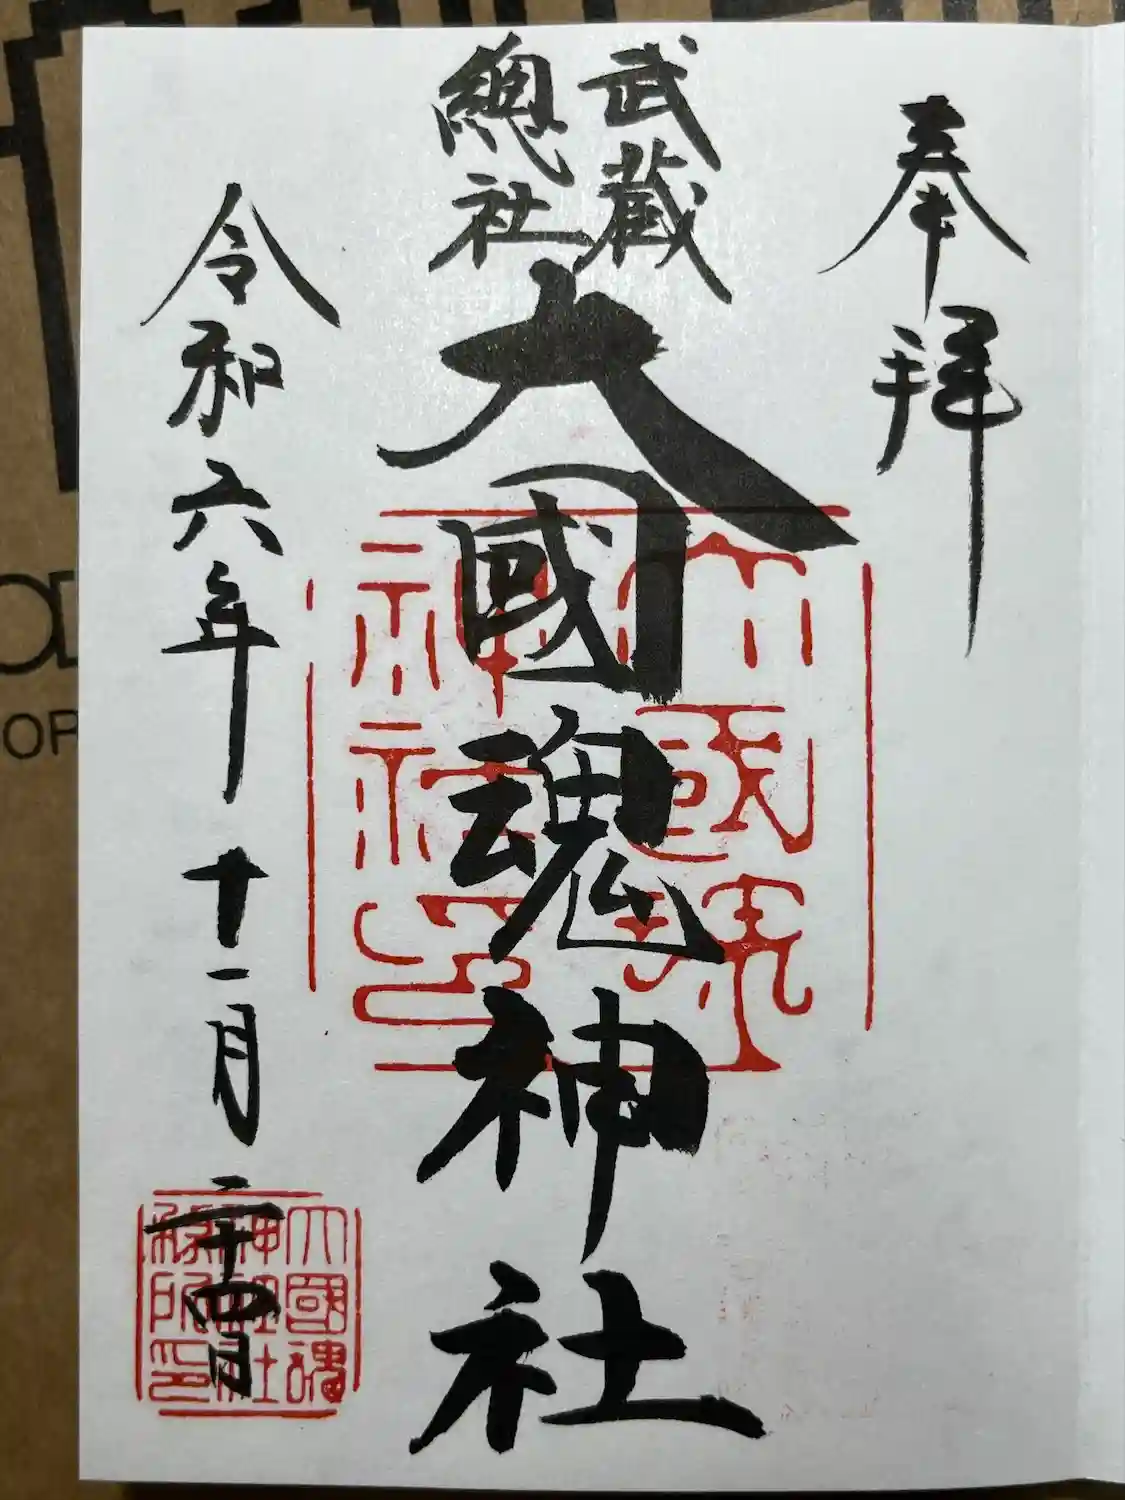 奉拝
武蔵
總社
大國魂神社
令和六年十一月二十四日
大國魂
神社印
大國魂
神社